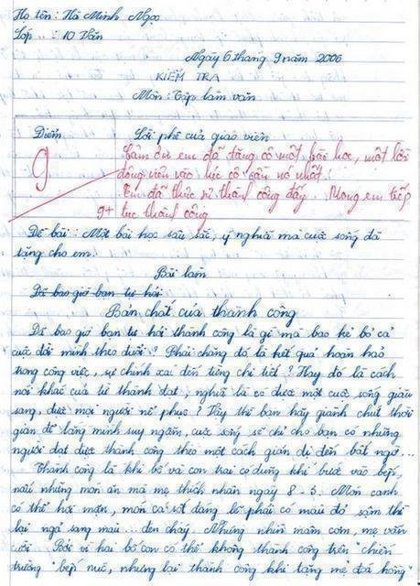 Họ tên : Hà Minh Ngọc
Lớp ..: 10 Văn
Ngày 6 tháng 9 năm 2006
KIỂM TRA
Môn : Tập làm văn
Điểm
Lời phê của giáo viên
9
Cảm ơn em đã tặng cô một bài học, một lời
động viên vào lúc cô cần nó nhất
Em đã thực sự thành công đấy. Mong em tiếp
9+ tục thành công
Đề bài : Một bài học sâu sắc, ý nghĩa mà cuộc sống đã
tặng cho em.
Bài làm
Đã bao giờ bạn tự hỏi
Bản chất của thành công
Đã bao giờ bạn tự hỏi thành công là gì mà bao kẻ bỏ cả
cuộc đời mình theo đuổi ? Phải chăng đó là kết quả hoàn hảo
trong công việc, sự chính xác đến từng chi tiết ? Hay đó là cách
nói khác của từ thành đạt, nghĩa là có được một cuộc sống giàu
sang, được mọi người nể phục ? Vậy thì bạn hãy giành chút thời
gian để lắng mình suy ngẫm, cuộc sống sẽ chỉ cho bạn có những
người đạt được thành công theo một cách giản dị đến bất ngờ...
Thành công là khi bố và con trai có dũng khí bước vào bếp
nấu những món ăn mà mẹ thích nhân ngày 8 - 3. Món canh
có thể hơi mặn, món cá sốt đáng lẽ phải có màu đỏ sậm thì
lại ngả sang màu ... đen cháy. Nhưng nhìn mâm cơm, mẹ vẫn
cười. Bởi vì hai bố con có thể không thành công trên "chiến
trường" bếp núc, nhưng lại thành công khi tặng mẹ đoá hồng